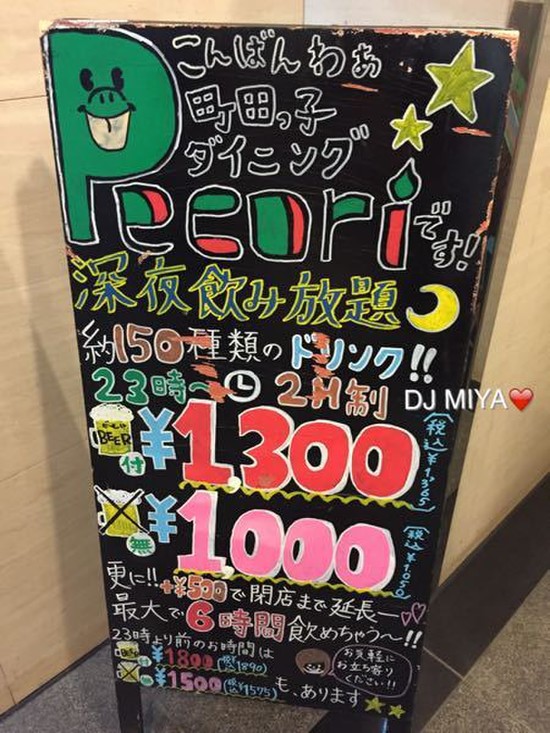 こんばんわぁ
町田っ子
ダイニング
Pecoriです!
深夜飲み放題
約150種類のドリンク!!
23時〜 2H制
DJ MIYA❤
BEER付 ¥1,300 (税込¥1,365)
無 ¥1,000 (税込¥1,050)
更に!!+¥500で閉店まで延長ー♡♡
最大で6時間飲めちゃう〜!!
23時より前のお時間は
BEER付 ¥1800(税込1890)
無 ¥1500(税込1575)も、あります★★
お気軽に
お立ち寄り
ください!!